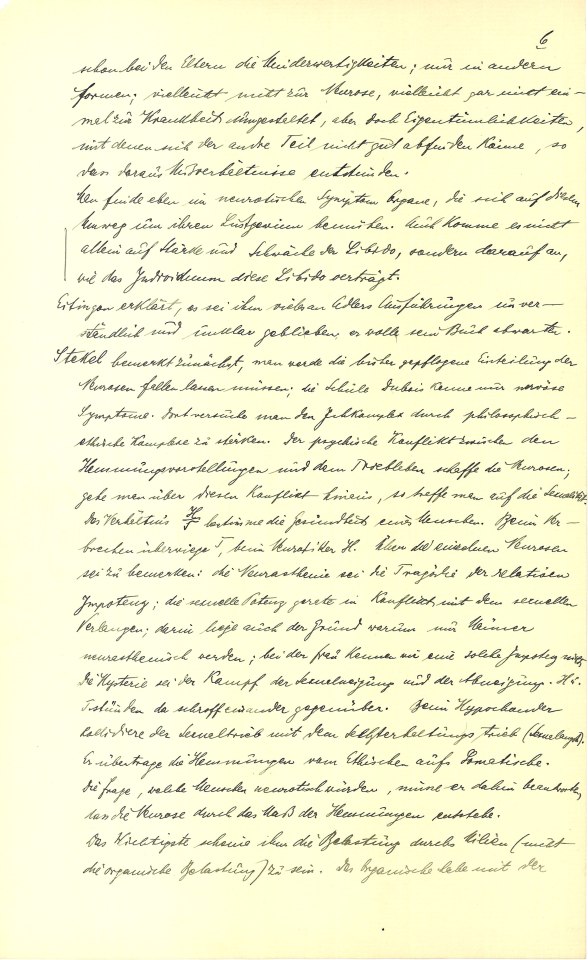 6
schon bei den Eltern die Minderwertigkeiten; nur in andern
Formen; vielleicht nicht zur Neurose, vielleicht gar nicht ein-
mal zur Krankheit umgestaltet, aber doch Eigentümlichkeiten,
mit denen sich der andre Teil nicht gut abfinden könne, so
dass daraus Missverhältnisse entstünden.
Man finde eben im neurotischen Symptom Organe, die sich auf diesem
Umweg um ihren Lustgewinn bemühen. Auch komme es nicht
allein auf Stärke und Schwäche der Libido, sondern darauf an,
wie das Individuum diese Libido verträgt.
Eitingon erklärt, es sei ihm vieles an Adlers Ausführungen unver-
ständlich und unklar geblieben er wolle sein Buch abwarten.
Stekel bemerkt zunächst, man werde die bisher gepflogene Einteilung der
Neurosen fallen lassen müssen; die Schule Dubois kenne nur nervöse
Symptome. Dort versuche man den Ichkomplex durch philosophisch-
ethische Komplexe zu stärken. Der psychische Konflikt zwischen den
Hemmungsvorstellungen und dem Triebleben schaffe die Neurosen;
gehe man über diesen Konflikt hinaus, so treffe man auf die Sexualität.
Das Verhältnis H/T bestimme die Gesundheit eines Menschen. Beim Ver-
brechen überwiege T, beim Neurotiker H. Über die einzelnen Neurosen
sei zu bemerken: die Neurasthenie sei die Tragödie der relativen
Impotenz; die sexuelle Potenz gerate in Konflikt mit dem sexuellen
Verlangen; darin liege auch der Grund warum nur Männer
neurasthenisch werden; bei der Frau kennen wir eine solche Impotenz nicht.
Die Hysterie sei der Kampf der Sexualneigung und der Abneigung. H u.
T stünden da schroff einander gegenüber. Beim Hypochonder
kollidiere der Sexualtrieb mit dem Selbsterhaltungstrieb
Er übertrage die Hemmungen vom Ethischen aufs Somatische.
Die Frage, welche Menschen neurotisch würden, müsse er dahin beantworten,
dass die Neurose durch das Maß der Hemmungen entstehe.
Das Wichtigste scheine ihm die Belastung durchs Milieu (nicht
die organische Belastung) zu sein. Das Organische habe mit der